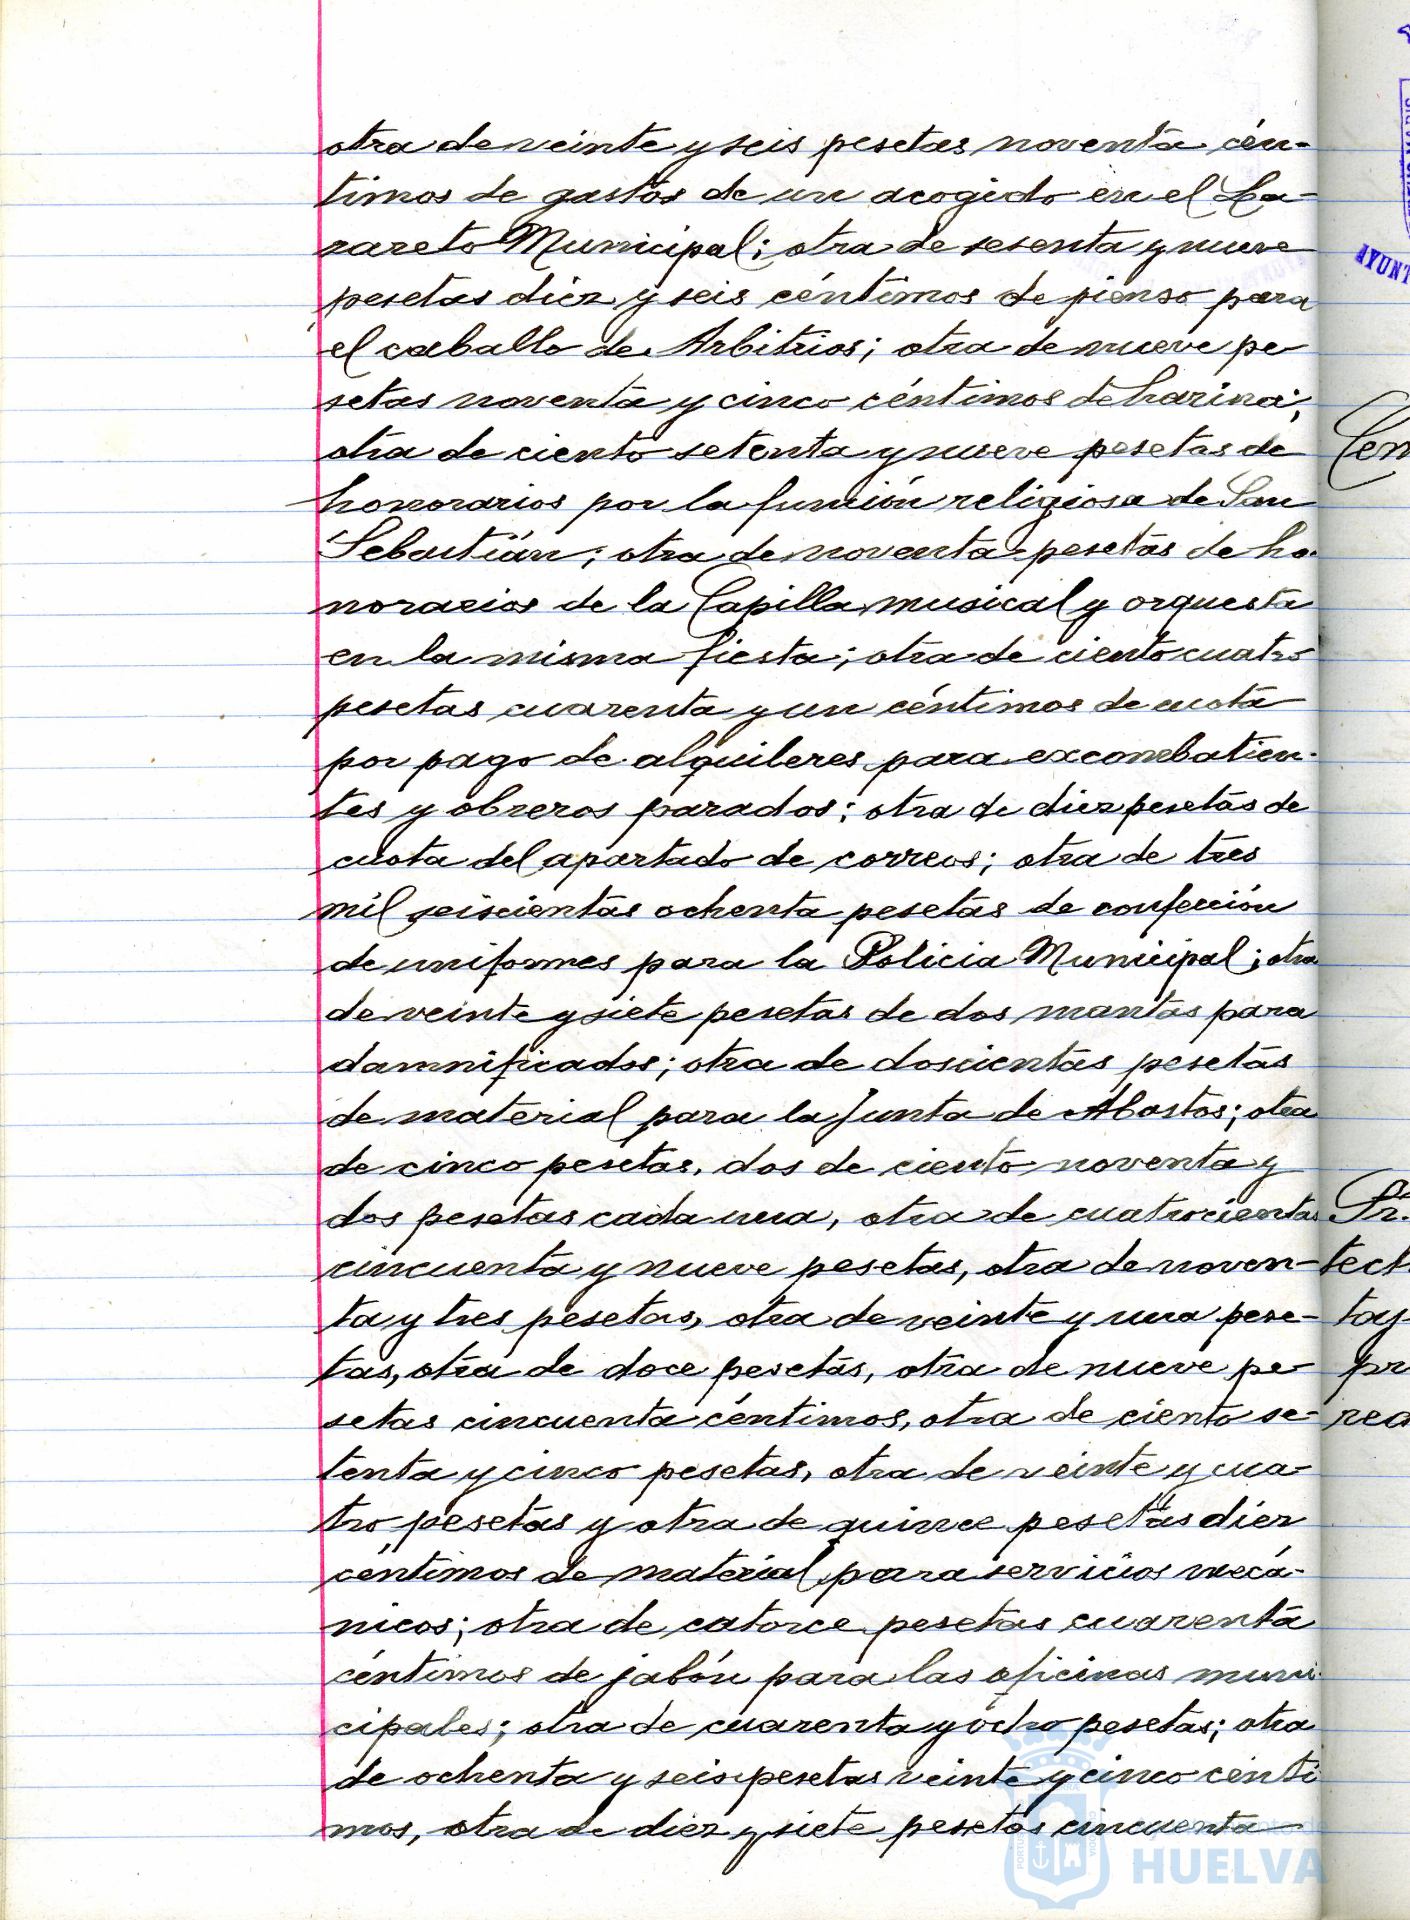 otra de veinte y seis pesetas noventa cén-
timos de gastos de un acogido en el La-
zareto Municipal; otra de sesenta y nueve
pesetas diez y seis céntimos de pienso para
el caballo de Arbitrios; otra de nueve pe
setas noventa y cinco céntimos de harina;
otra de ciento setenta y nueve pesetas de
honorarios por la función religiosa de San
Sebastián; otra de noventa pesetas de ho-
norarios de la Capilla musical y orquesta
en la misma fiesta; otra de ciento cuatro
pesetas cuarenta y un céntimos de cuota
por pago de alquileres para excombatien-
tes y obreros parados; otra de diez pesetas de
cuota del apartado de correos; otra de tres
mil seiscientas ochenta pesetas de confección
de uniformes para la Policia Municipal; otra
de veinte y siete pesetas de dos mantas para
damnificados; otra de doscientas pesetas
de material para la Junta de Abastos; otra
de cinco pesetas, dos de ciento noventa y
dos pesetas cada una, otra de cuatrocientas
cincuenta y nueve pesetas, otra de noven-
ta y tres pesetas, otra de veinte y una pese-
tas, otra de doce pesetas, otra de nueve pe-
setas cincuenta céntimos, otra de ciento se-
tenta y cinco pesetas, otra de veinte y cua-
tro pesetas y otra de quince pesetas diez
céntimos de material para servicios mecá-
nicos; otra de catorce pesetas cuarenta
céntimos de jabón para las oficinas muni-
cipales; otra de cuarenta y ocho pesetas; otra
de ochenta y seis pesetas veinte y cinco cénti
mos, otra de diez y siete pesetas cincuenta
HUELVA